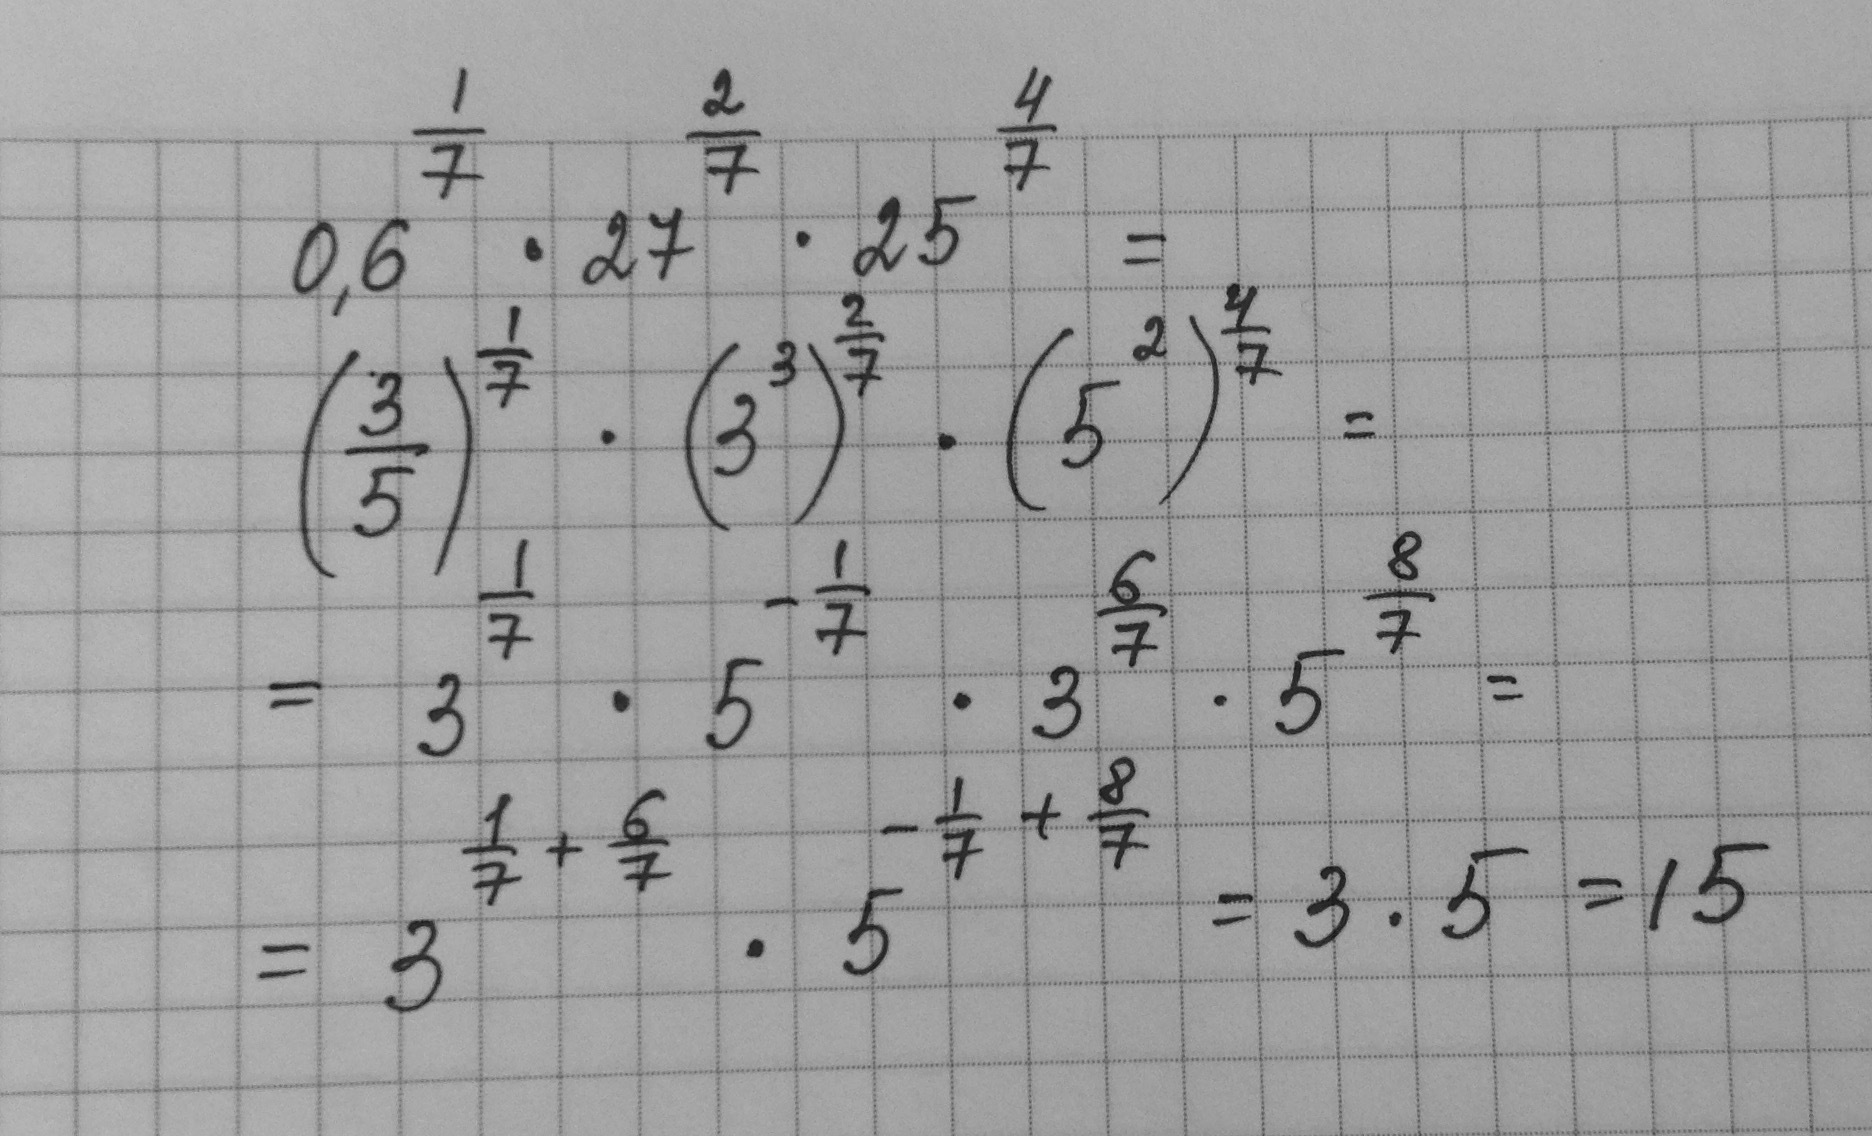 0,6^(1/7) · 27^(2/7) · 25^(4/7) =
(3/5)^(1/7) · (3^3)^(2/7) · (5^2)^(4/7) =
= 3^(1/7) · 5^(-1/7) · 3^(6/7) · 5^(8/7) =
= 3^(1/7 + 6/7) · 5^(-1/7 + 8/7) = 3 · 5 = 15